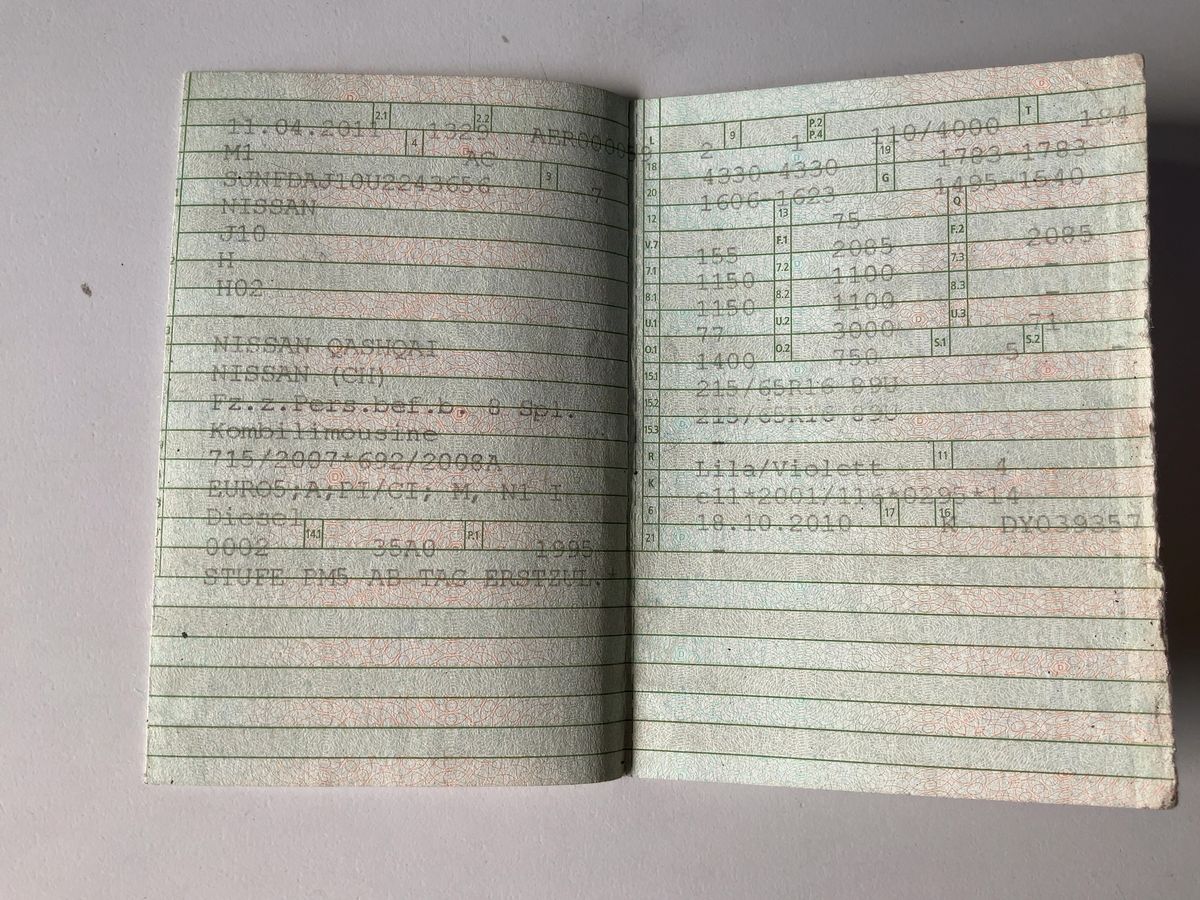 2.1 2.2
11.04.2011 1329 AER000098
4
M1 AC
3
SJNFDAJ10U2243656 7
NISSAN
J10
H
H02
-
NISSAN QASHQAI
NISSAN (CH)
Fz.z.Pers.bef.b. 8 Spl.
Kombilimousine
715/2007*692/2008A
EURO5;A;PI/CI; M, N1 I
Diesel
14.1 P.1
0002 35A0 1995
STUFE PM5 AB TAG ERSTZUL.*
L 9 P.2 P.4 T
2 1 110/4000 194
18 19
4330-4330 1783-1783
20 G
1606-1623 1485-1540
12 13 Q
- 75
V.7 F.1 F.2
155 2085 2085
7.1 7.2 7.3
1150 1100 -
8.1 8.2 8.3
1150 1100 -
U.1 U.2 U.3
77 3000 71
O.1 O.2 S.1 S.2
1400 750 5 -
15.1
215/65R16 89U
15.2
215/65R16 89U
15.3
-
R 11
Lila/Violett 4
K
e11*2001/116*0295*14
6 17 16
18.10.2010 K DY039357
21
-